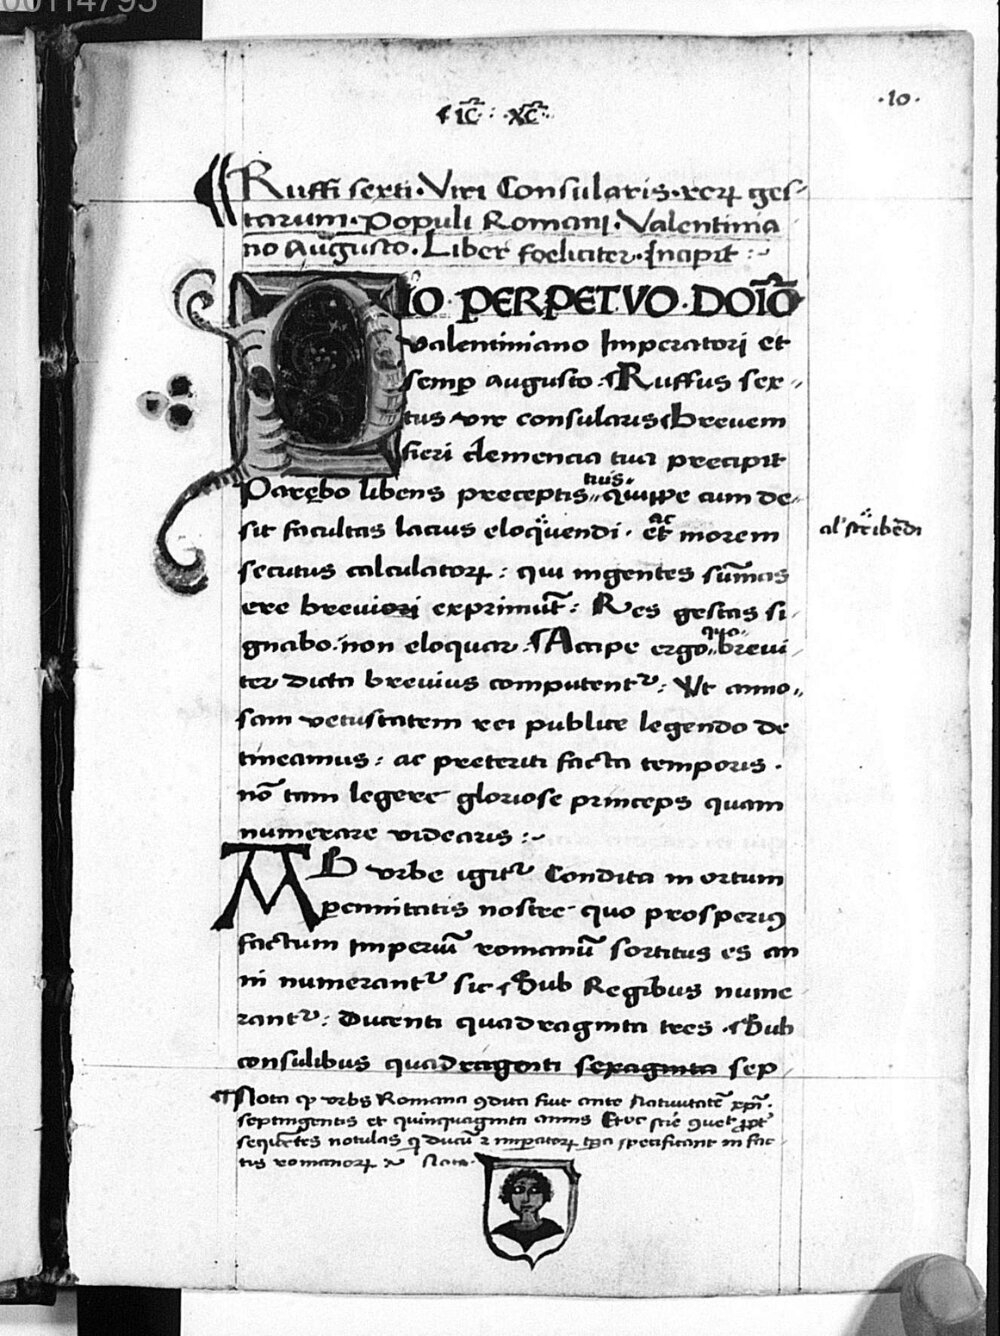 00114795
·10·
·IC̅· : ·XC̅·
Ruffi sexti· Viri Consularis· reꝝ ges-
tarum· Populi Romani· Valentinia
no Augusto· Liber foeliciter· Incipit :~
PIO· PERPETVO· DOIO̅
valentiniano Imperatori et
semꝑ augusto : Ruffus sex-
tus vir consularis Breuem
fieri clemencia tua precipit
Parebo libens preceptis tuis quippe cum de-
sit facultas lacius eloquendi· et ac morem
al' scribe̅di
secutus calculatorꝝ : qui ingentes su̅mas
ere breuiori exprimu̅t : Res gestas si-
gnabo· non eloquar· Accipe ergo quo breui-
ter dicta breuius computentᷣ : Vt anno-
sam vetustatem rei publice legendo de
tineamus : ac preteriti facta temporis·
no̅ tam legere gloriose princeps quam
numerare videaris :~
AB vrbe igitᷣ Condita in ortum
ꝑennitatis nostre quo prosperiꝰ
factum Imperiu̅ romanu̅ sortitus es an
ni numerantᷣ sic Sub Regibus nume
rantᷣ : Ducenti quadraginta tres· Sub
consulibus quadragenti sexaginta sep
Nota ꝙ vrbs Romana ꝯdita fuit ante Natiuitate̅ xp̅i·
septingentis et quinquaginta annis
seque̅tes notulas
tis romanorꝝ Nota·